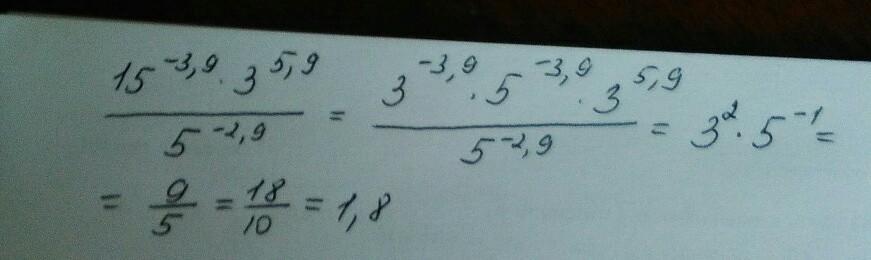 15^{-3,9} · 3^{5,9} / 5^{-2,9} = 3^{-3,9} · 5^{-3,9} · 3^{5,9} / 5^{-2,9} = 3^2 · 5^{-1} =
= 9/5 = 18/10 = 1,8